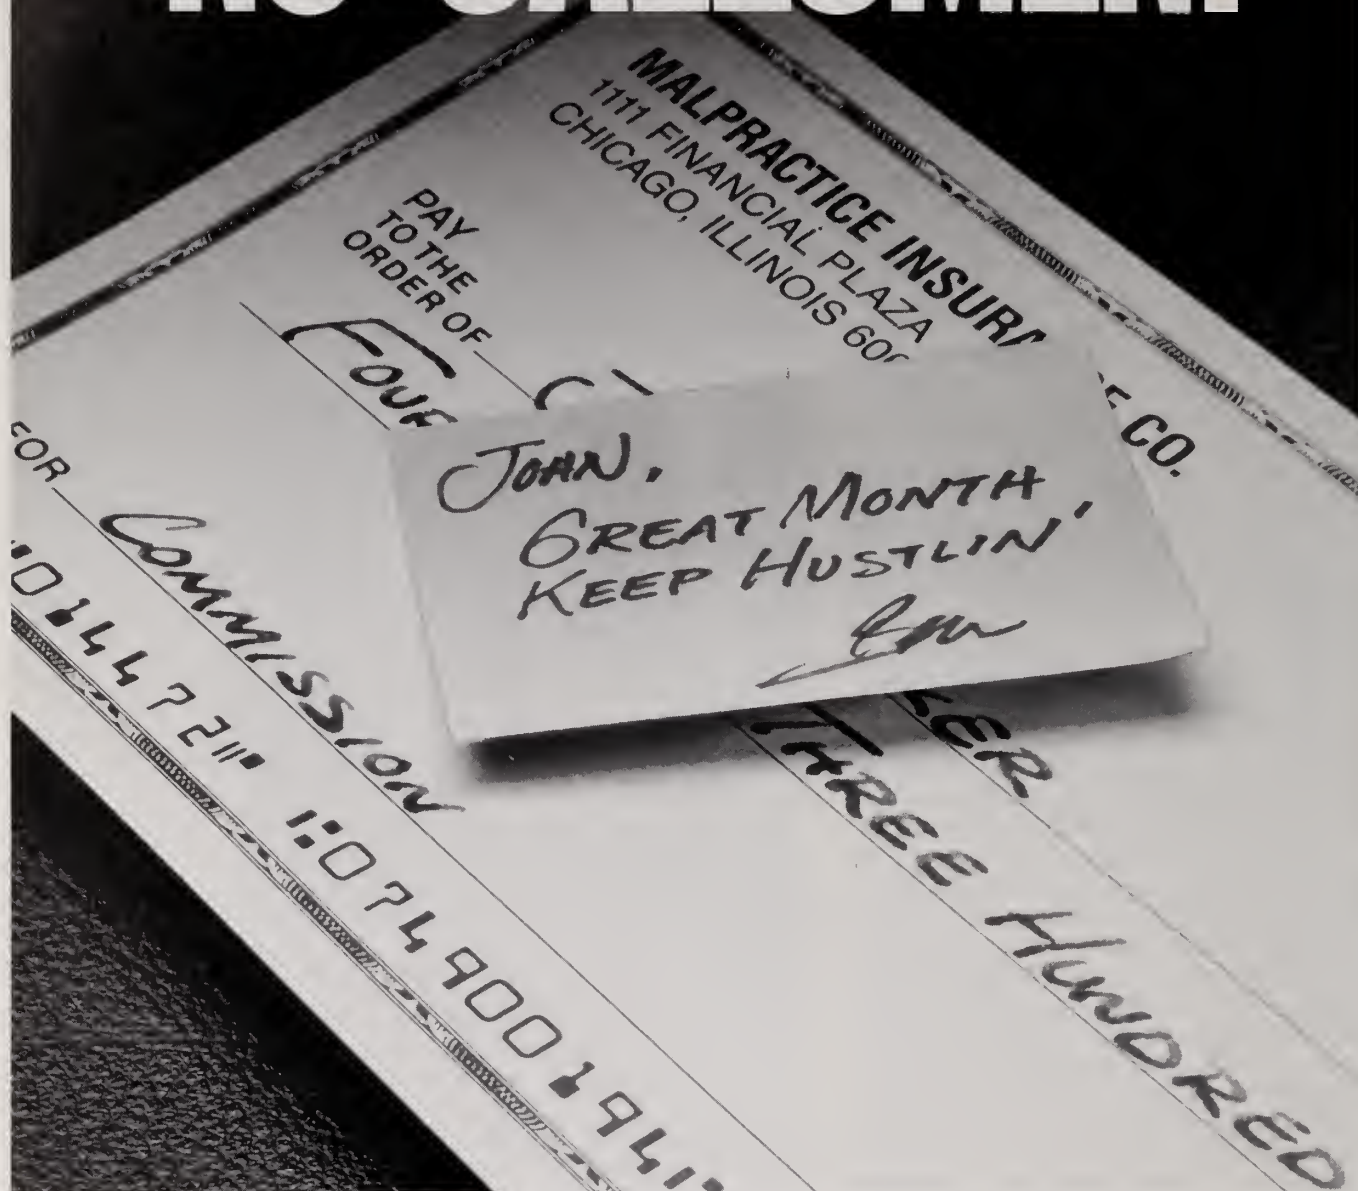 NO SALESMEN
MALPRACTICE INSURA
CE CO.
1111 FINANCIAL PLAZA
CHICAGO, ILLINOIS 606
PAY
TO THE
ORDER OF
FOUR
KER
THREE HUNDRED
JOHN,
GREAT MONTH
KEEP HUSTLIN'
FOR COMMISSION
014472
07490019417